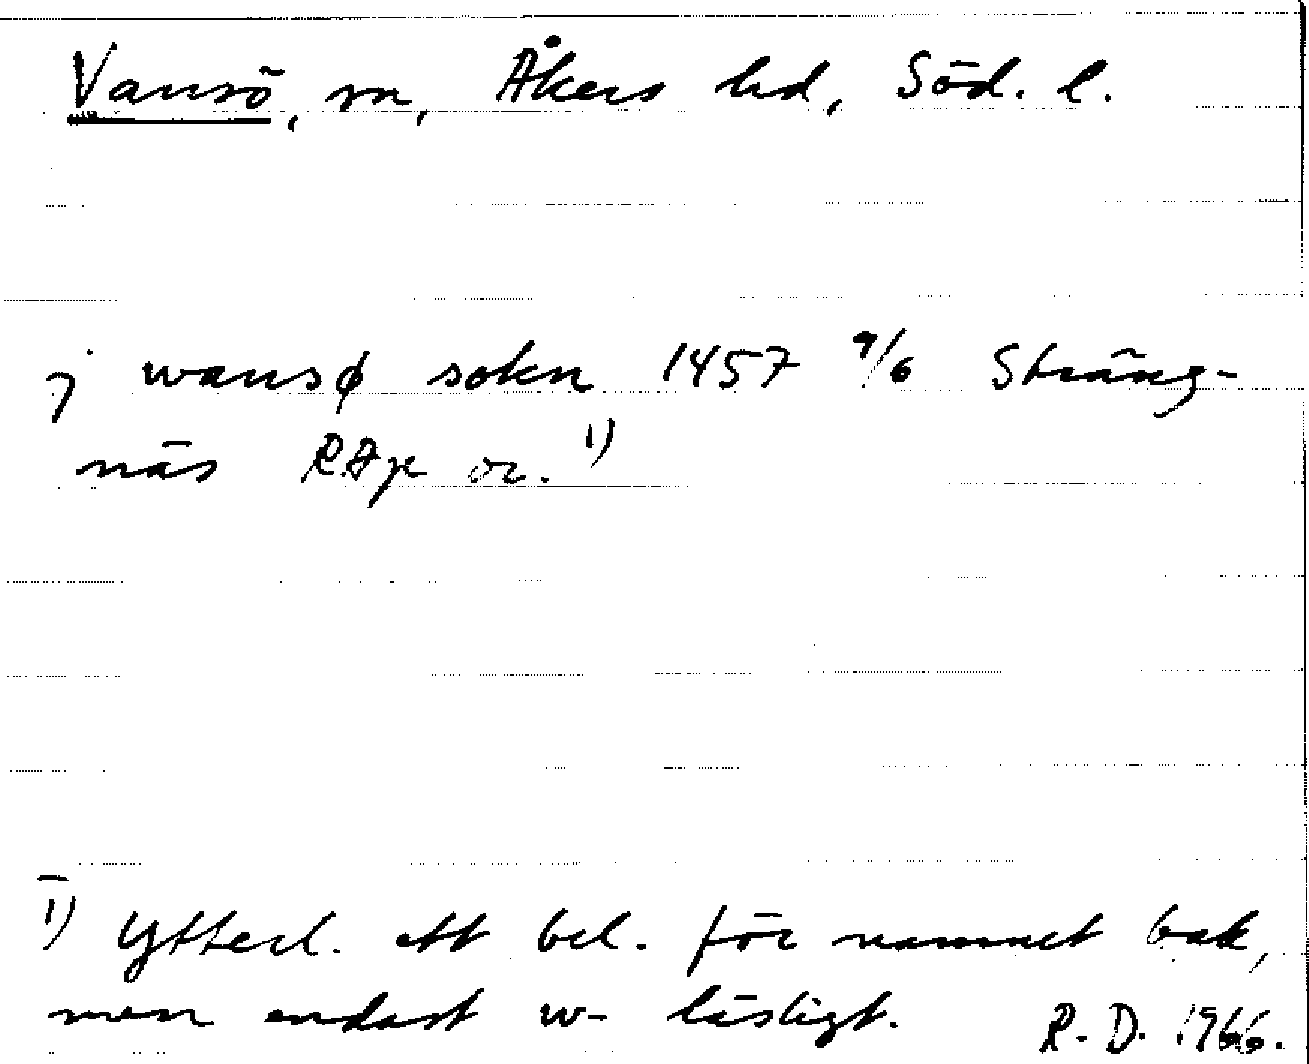 Vansö, sn, Åkers hd, Söd. l.
j wansø sokn 1457 9/6 Sträng-
näs RAp or. 1)
1) Ytterl. ett bel. för namnet bak,
men endast w- läsligt. R. D. 1966.